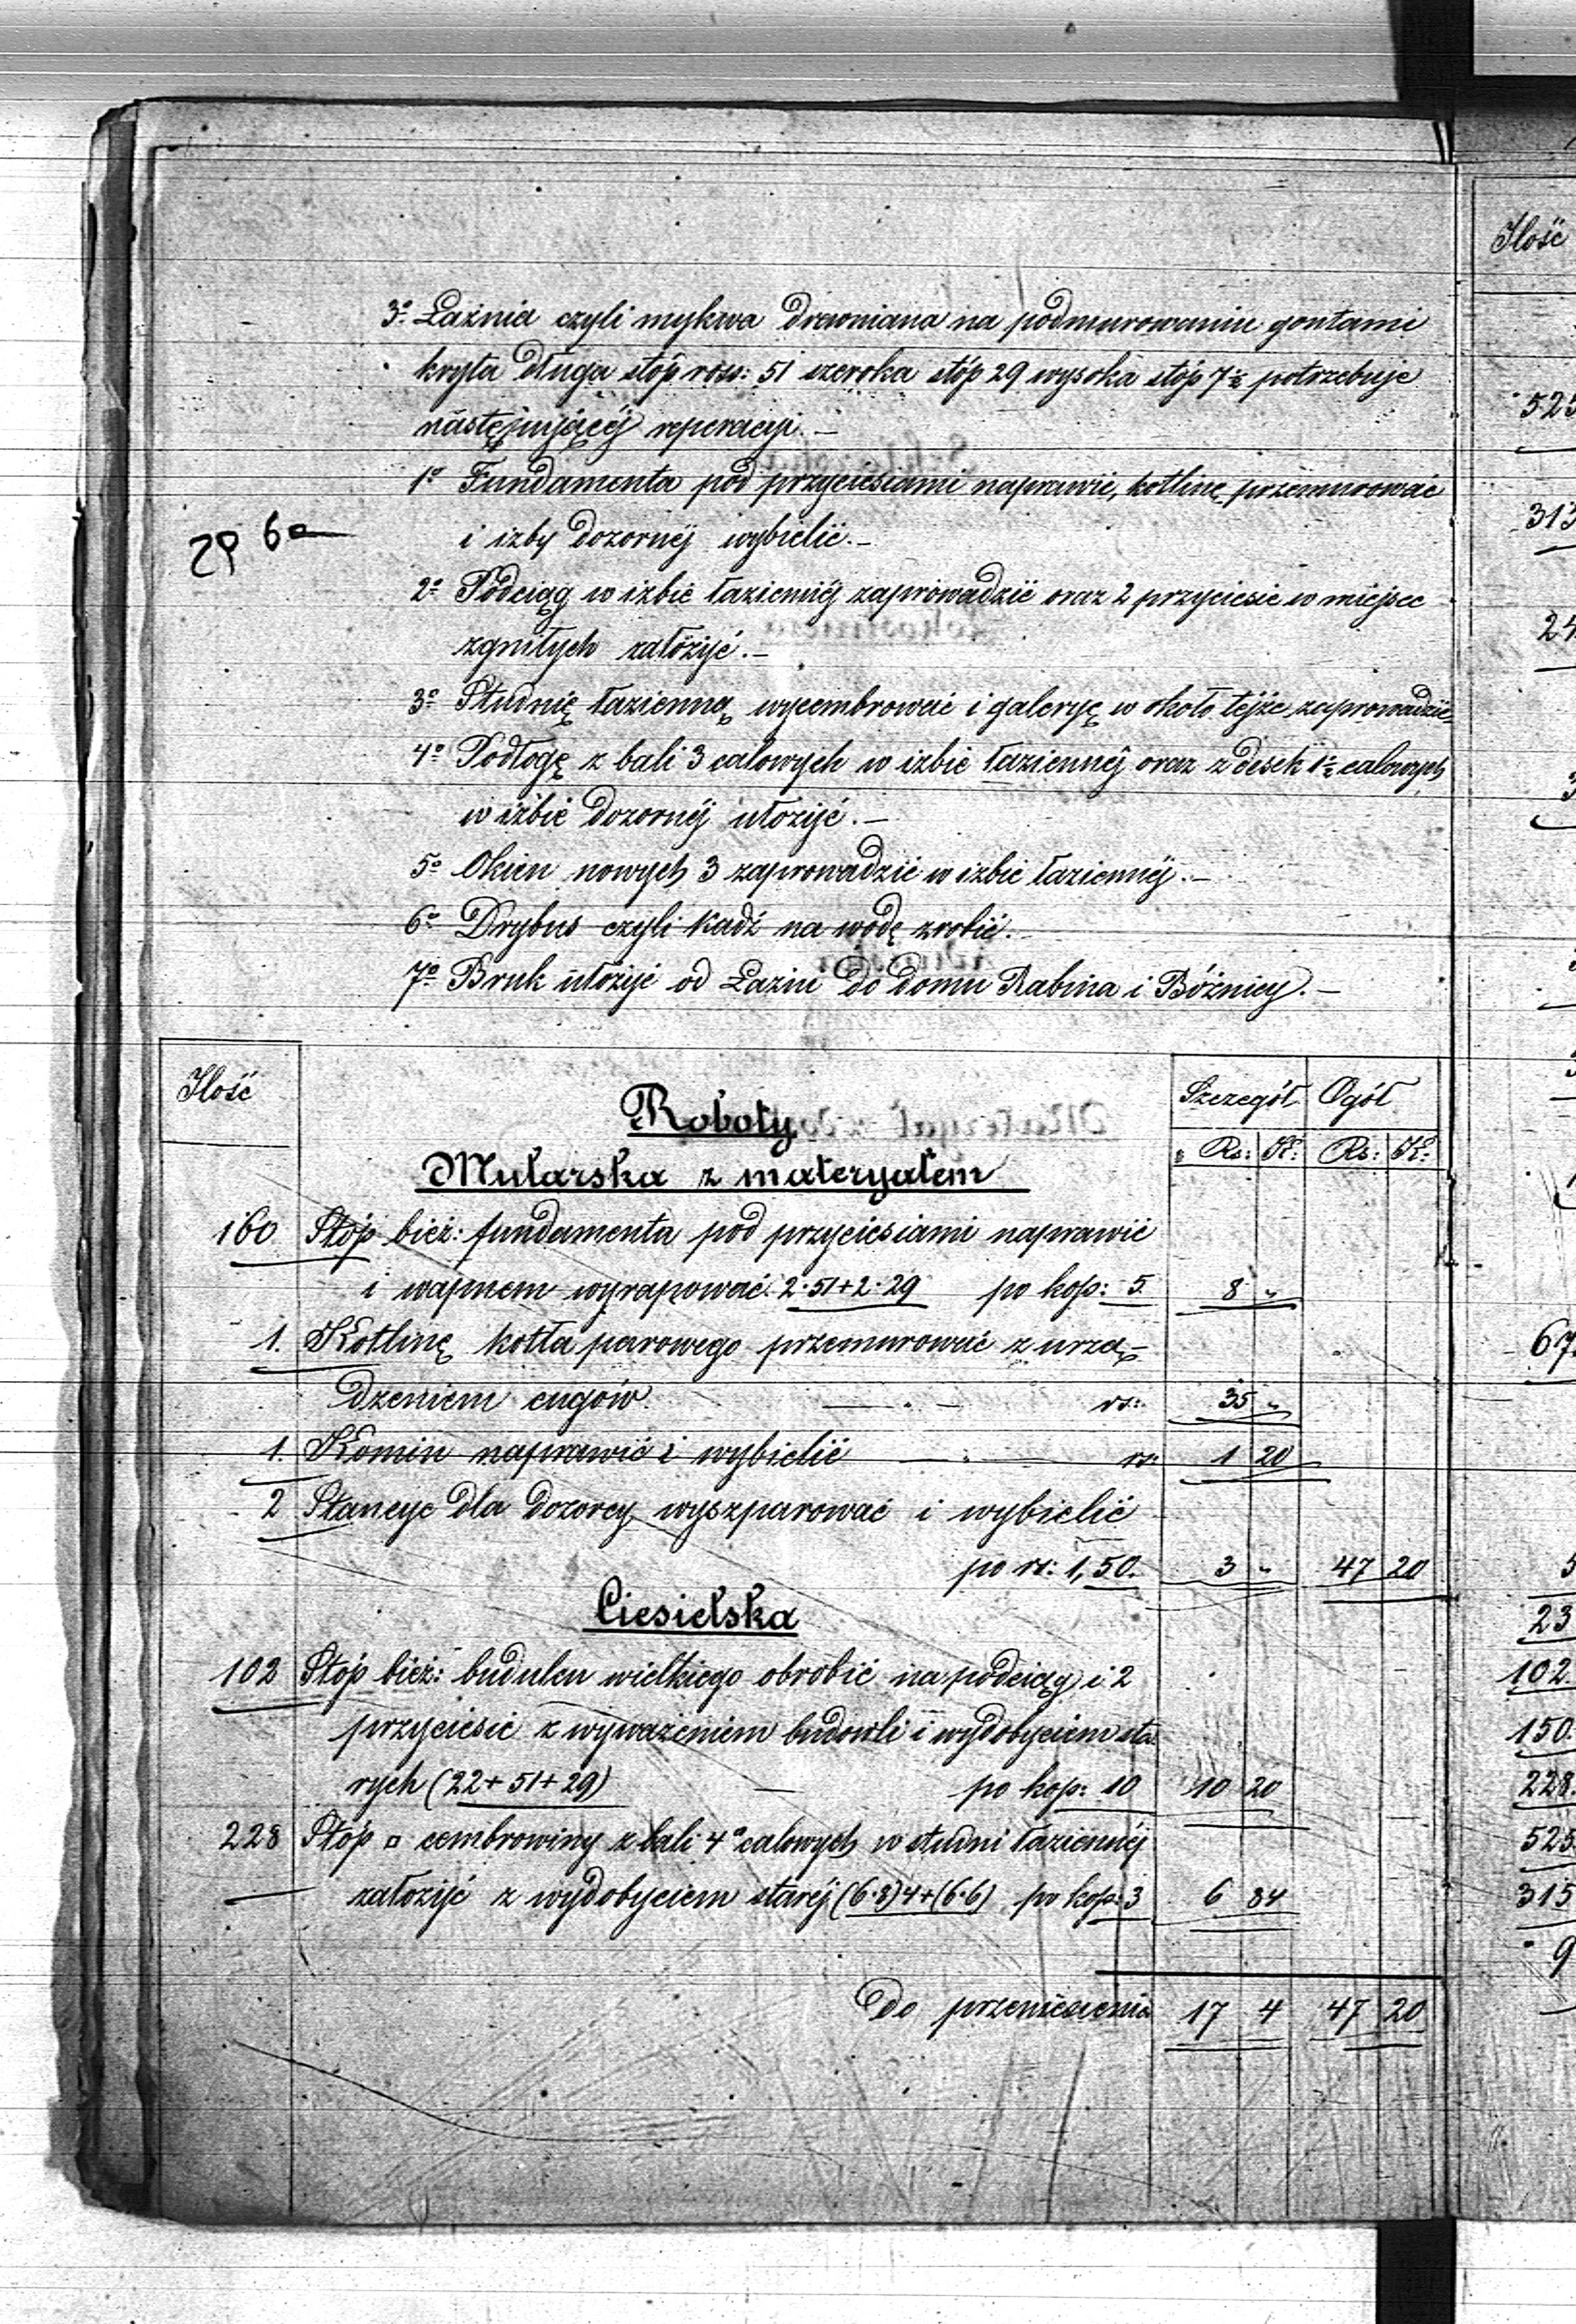 3º Łaźnia czyli mykwa drewniana na podmurowaniu gontami
kryta długa stóp ross: 51 szeroka stóp 29 wysoka stóp 7½ potrzebuje
następującéj reperacyi.—
1º Fundamenta pod przyciesiami naprawić, kotlinę przemurować
i izby dozornéj wybielić.—
2º Podciąg w izbie łaziennéj zaprowadzić oraz 2 przyciesie w miejsce
zgniłych założyć.—
3º Studnię łazienną wycembrować i galeryę w około tejże zaprowadzić
4º Podłogę z bali 3 calowych w izbie łaziennéj oraz z desek 1½ calowych
w izbie dozornéj ułożyć.—
5º Okien nowych 3 zaprowadzić w izbie łaziennéj.—
6º Drybus czyli kadź na wodę zrobić.
7º Bruk ułożyć od Łazni do domu Rabina i Bóżnicy.—
Ilość
Szczegół Ogół
Rs: K: Rs: K:
Roboty
Mularska z materyałem
160 Stóp bież: fundamenta pod przyciesiami naprawić
i wapnem wyrapować 2·51+2·29 po kop: 5. 8 "
1. Kotlinę kotła parowego przemurować z urzą-
dzeniem cugów. — rs: 35 "
1. Komin naprawić i wybielić — rs: 1 20
2 Stancye dla dozorcy wyszparować i wybielić
po rs: 1,50. 3 " 47 20
Ciesielska
102 Stóp bież: budulcu wielkiego obrobić na podciąg i 2
przyciesie z wyważeniem budowli i wydobyciem sta
rych (22+51+29) — po kop: 10 10 20
228 Stóp □ cembrowiny z bali 4º calowych w studni łaziennéj
założyć z wydobyciem staréj (6·8)4+(6·6) po kop: 3 6 84
Do przeniesienia 17 4 47 20
Ilość
67.
23
102.
150.
228.
525
315
9